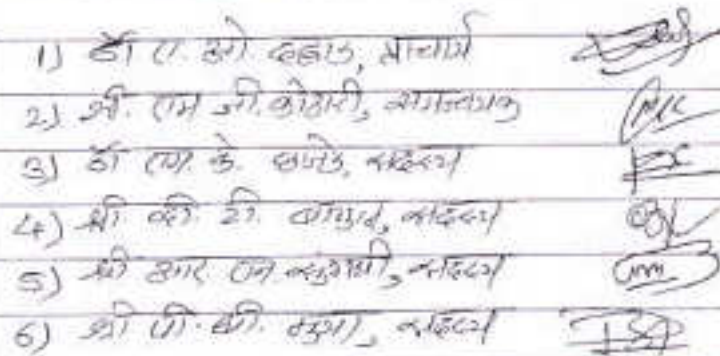 1) डॉ ए. ओ. दहाड, प्राचार्य
2) श्री. एम जी. कोठारी, समन्वयक
3) डॉ एम. के. छाजेड, सदस्य
4) श्री व्ही. टी. सदस्य
5) श्री आर एन. सदस्य
6) श्री पी. बी. मुथा, सदस्य